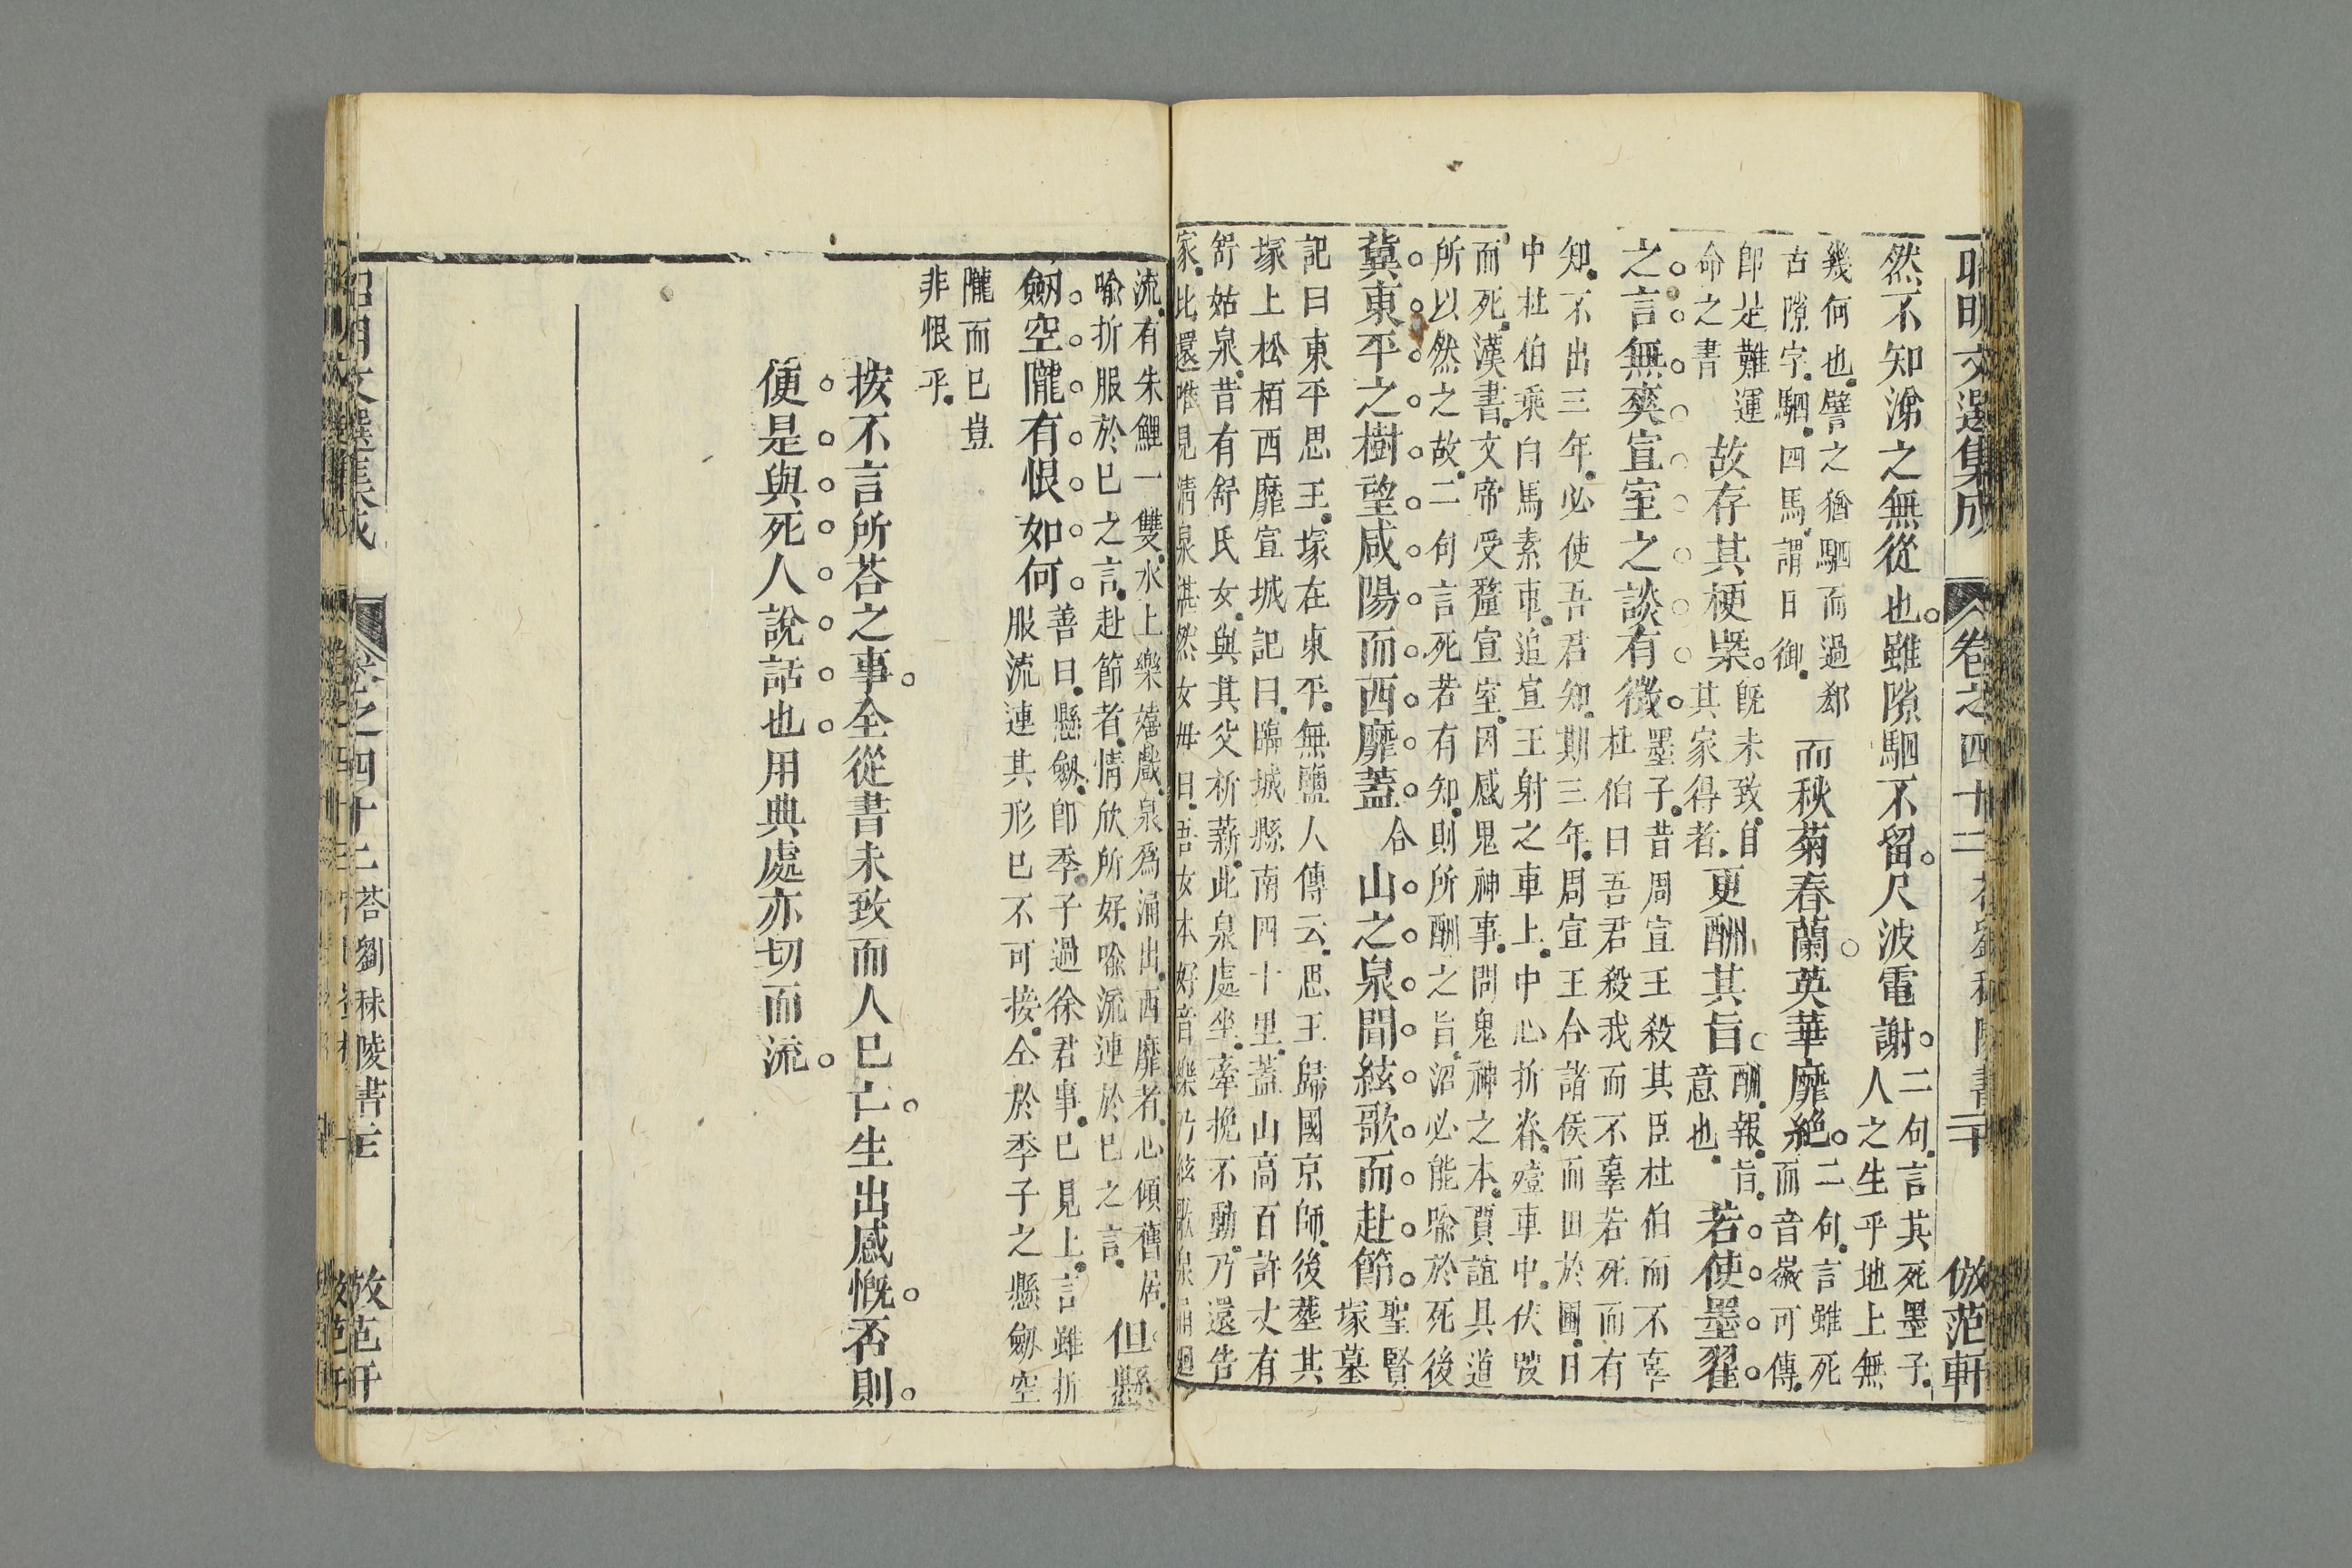 昭明文選集成 卷之四十二 荅劉秣陵書 二十 倣范軒
然不知潸之無從也雖隙駟不留尺波電謝二句言其死墨子
人之生乎地上無
幾何也譬之猶駟而過郄
古隙字駟四馬謂日御
而秋菊春蘭英華靡絕二句言雖死
而音徽可傳
即是難運
命之書
故存其梗槩既未致自
其家得者
更酬其旨酬報旨
意也
若使墨翟
之言無爽宣室之談有徵墨子昔周宣王殺其臣杜伯而不辜
杜伯曰吾君殺我而不辜若死而有
知不出三年必使吾君知期三年周宣王合諸侯而田於圃日
中杜伯乘白馬素車追宣王射之車上中心折脊殪車中伏弢
而死漢書文帝受釐宣室因感鬼神事問鬼神之本賈誼具道
所以然之故二句言死若有知則所酬之旨沼必能喻於死後
冀東平之樹望咸陽而西靡蓋合山之泉聞絃歌而赴節聖賢
塚墓
記曰東平思王塚在東平無鹽人傳云思王歸國京師後塟其
塚上松栢西靡宣城記曰臨城縣南四十里蓋山高百許丈有
舒姑泉昔有舒氏女與其父析薪此泉處坐牽挽不動乃還告
家比還唯見清泉湛然女母曰吾女本好音樂乃絃歌泉涌廻
流有朱鯉一雙水上樂嬉戲泉爲涌出西靡者心傾舊居
喻折服於已之言赴節者情欣所好喻流連於已之言
但懸
劒空隴有恨如何善曰懸劒即季子過徐君事已見上言雖折
服流連其形已不可接仝於季子之懸劒空
隴而已豈
非恨乎
按不言所荅之事全從書未致而人已亡生出感慨否則
便是與死人說話也用典處亦切而流
昭明文選集成 卷之四十二 荅劉秣陵書 三 倣范軒